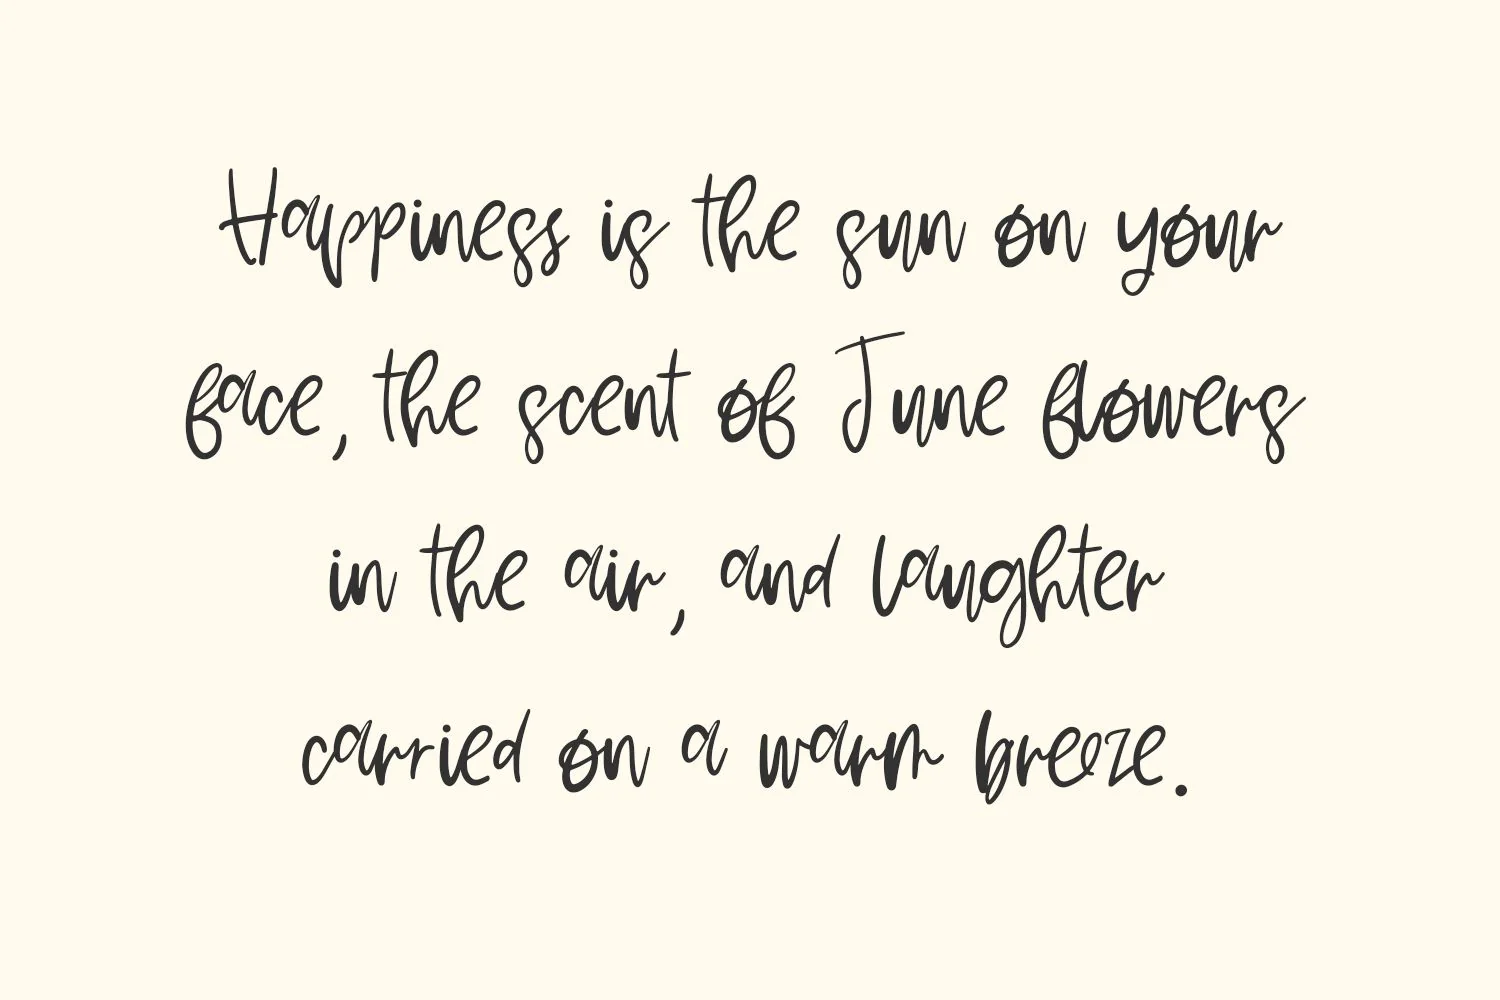 Happiness is the sun on your
face, the scent of June flowers
in the air, and laughter
carried on a warm breeze.